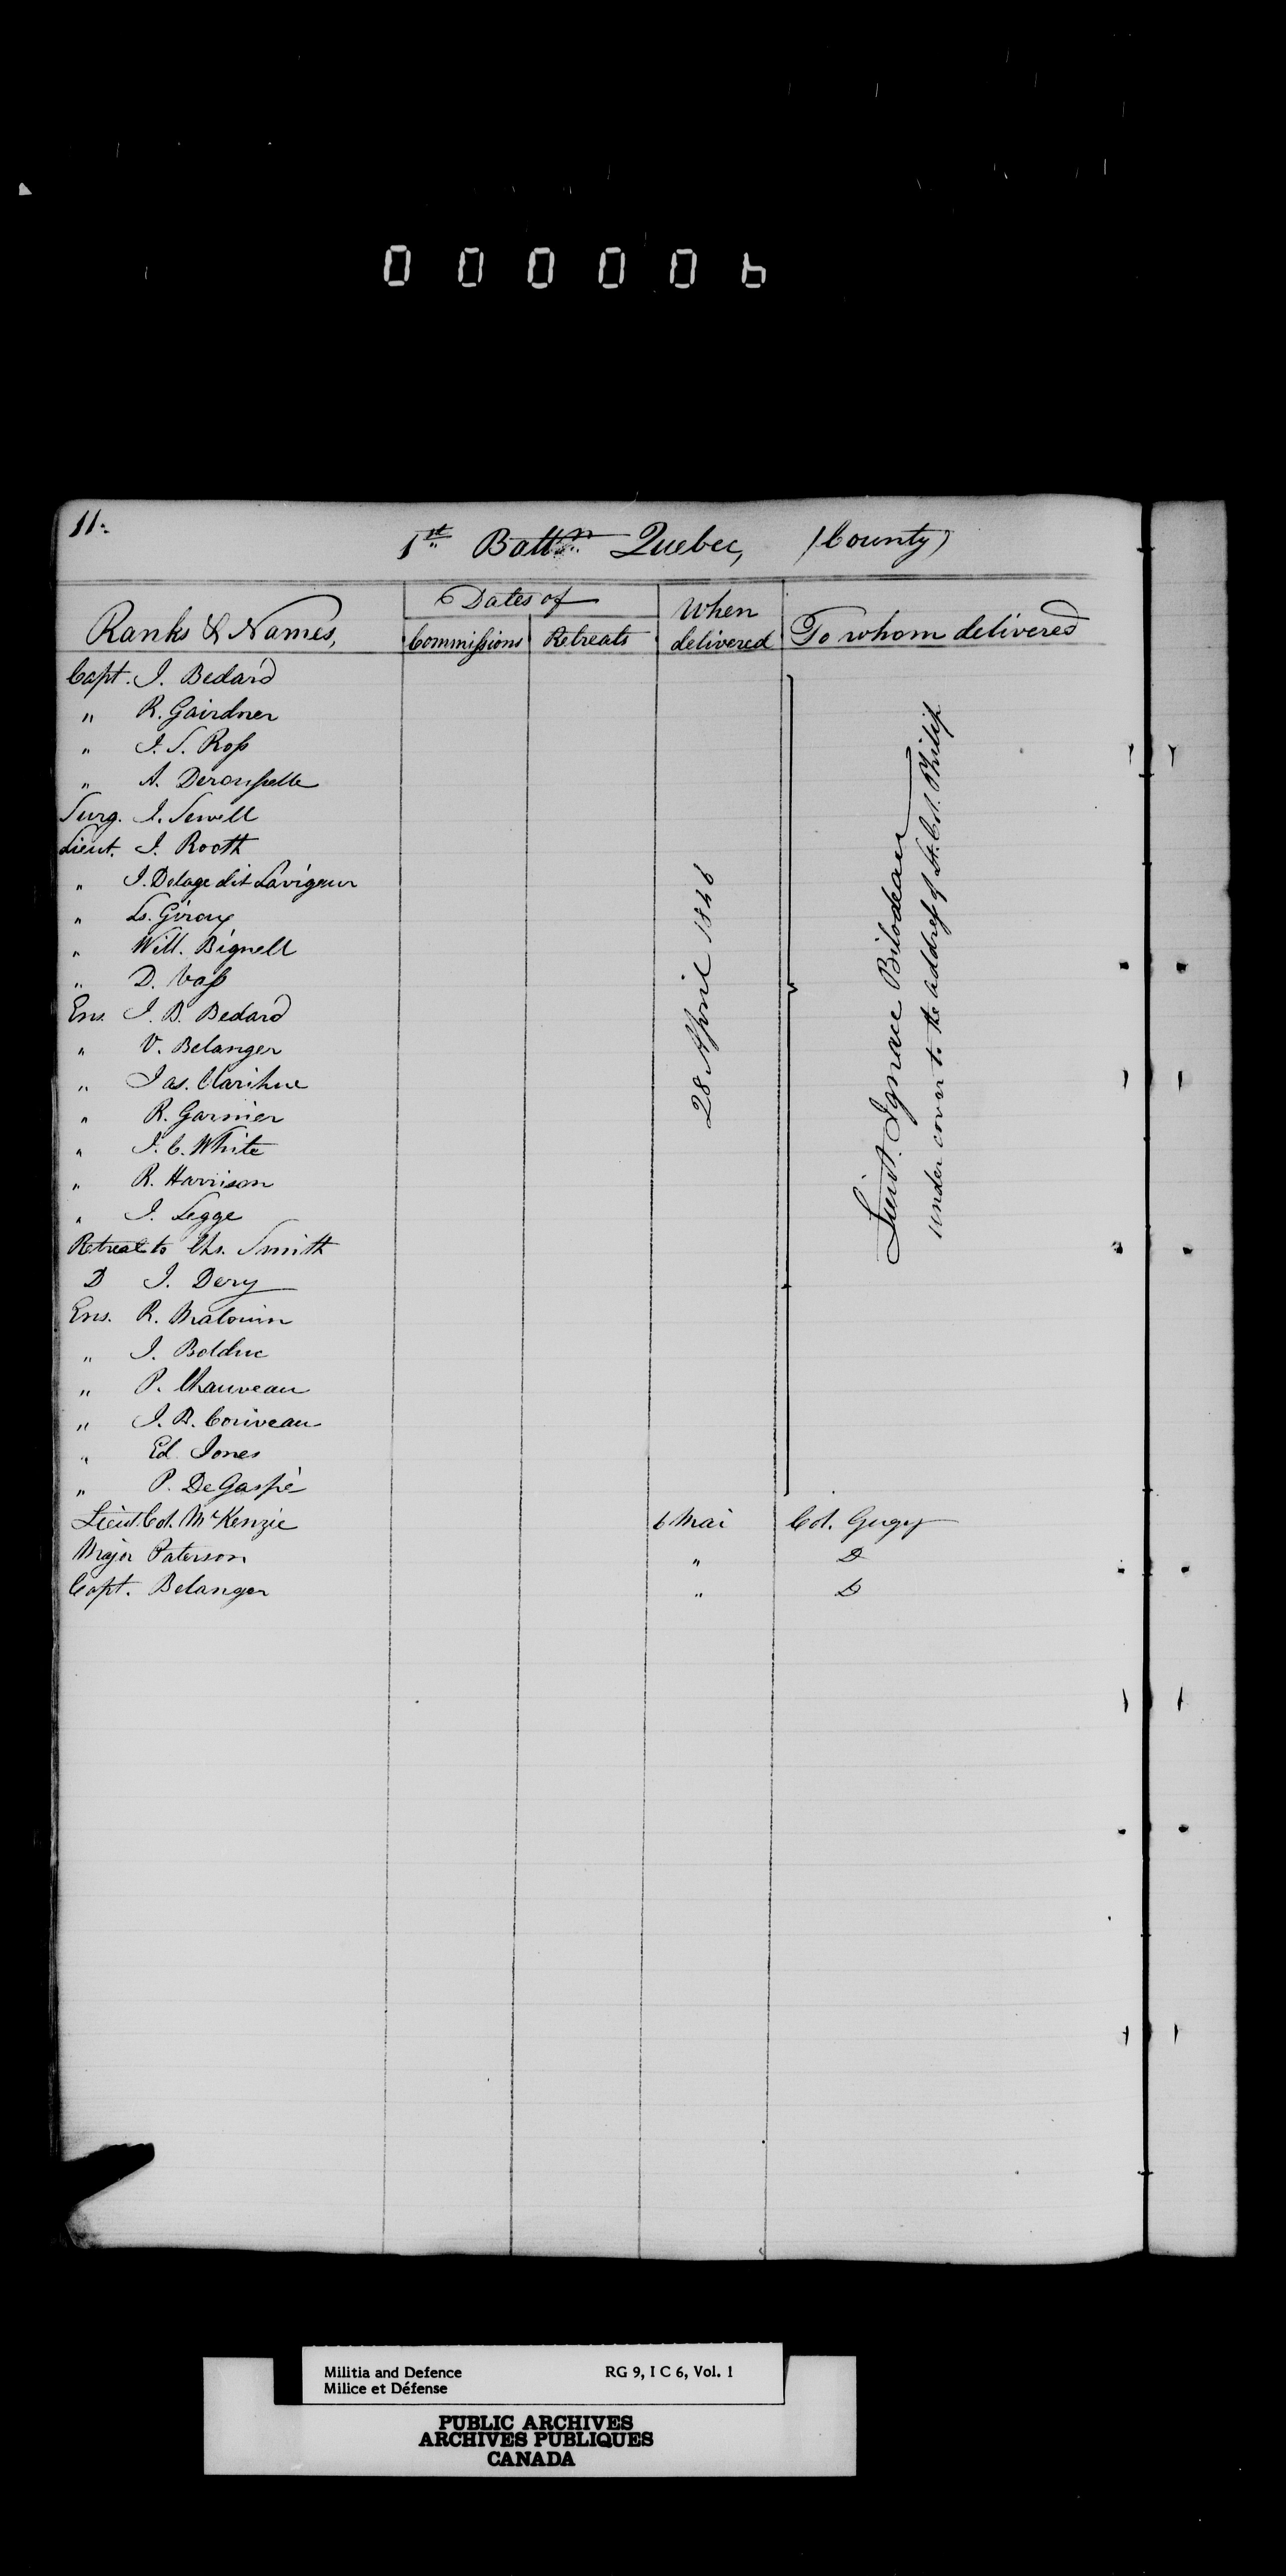 000006
11.
1st Battn Quebec, (County)
Ranks & Names,
Dates of
Commissions
Retreats
When delivered
To whom delivered
Capt. J. Bedard
" R. Gairdner
" J. S. Ross
" A. Derousselle
Surg. J. Sewell
Lieut. J. Rooth
" J. Delage dit Lavigeur
" Ls. Giroux
" Will. Bignell
" D. Vass
Ens. J. B. Bedard
" V. Belanger
" Jas. Clarihue
" R. Garnier
" J. C. White
" R. Harrison
" J. Legge
Retreat to Chs. Smith
D J. Dery
Ens. R. Malouin
" J. Bolduc
" P. Chauveau
" J. B. Coriveau
" Ed. Jones
" P. DeGaspé
28 April 1846
Lieut. Ignace Bilodeau
under cover to the address of Lt. Col. Philip
Lieut. Col. McKenzie 6 Mai Col. Gugy
Major Paterson " D
Capt. Belanger " D
Militia and Defence RG 9, I C 6, Vol. 1
Milice et Défense
PUBLIC ARCHIVES
ARCHIVES PUBLIQUES
CANADA